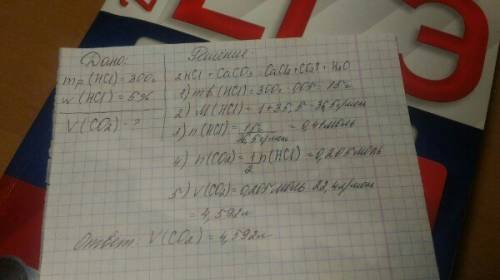 Дано:
mр(HCl)=300г
w(HCl)=5%
V(CO₂)-?
Решение
2HCl+CaCO₃=CaCl₂+CO₂↑+H₂O
1) mв(HCl)=300г·0,05=15г
2) M(HCl)=1+35,5=36,5г/моль
3) n(HCl)=15г/36,5г/моль=0,41моль
4) n(CO₂)=1/2n(HCl)=0,205моль
5) V(CO₂)=0,205моль·22,4л/моль
=4,592л
Ответ: V(CO₂)=4,592л
ЕГЭ